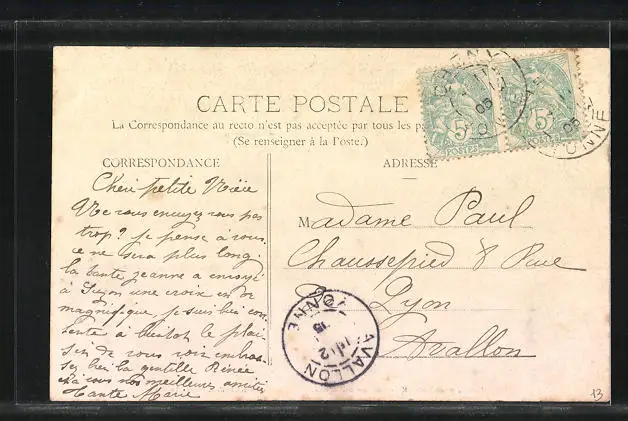 CARTE POSTALE
La Correspondance au recto n'est pas acceptée par tous les pa
(Se renseigner à la Poste.)
CORRESPONDANCE
Chère petite
Ne vous ennuyez vous pas
trop? je pense à vous
ce ne sera plus long.
la tante Jeanne a envoyé
à une croix en or
magnifique, je suis bien con
tente à bientôt le plai
sir de vous voir embras
sez bien la gentille Renée
à vous nos meilleures amitiés
Tante Marie
ADRESSE
Madame Paul
Chaussepied 8 Rue
de Lyon
Avallon
5
POSTES
5
05
YONNE
AVALLON
YONNE
13